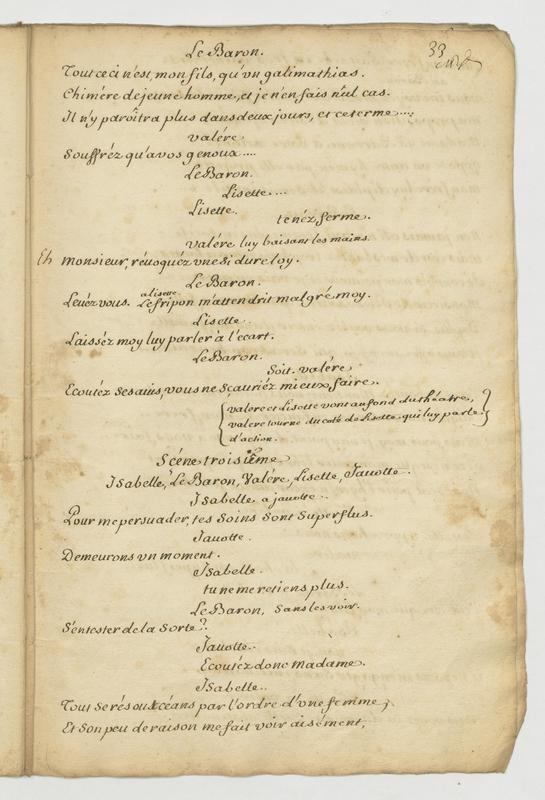 33
Le Baron.
Tout ceci n'est, mon fils, qu'vn galimathias.
Chimére de jeune homme, et je n'en fais nul cas.
Il n'y paroîtra plus dans deux jours, et ce terme....
valére
Souffréz qu'a vos genoux....
Le Baron.
Lisette....
Lisette.
tenéz ferme.
valére luy baisant les mains.
Eh monsieur, révoquéz vne si dure loy.
Le Baron.
a lisette
Levéz vous. Le fripon m'attendrit malgré moy.
Lisette.
Laisséz moy luy parler à l'écart.
Le Baron.
Soit. valére
Ecoutéz ses auis, vous ne scauriéz mieux faire.
valere et Lisette vont au fond du théatre,
valere tourne du coté de Lisette qui luy parle
d'action.
Scéne troisiéme
Isabelle, Le Baron, Valére, Lisette, Jauotte.
Isabelle a jauotte.
Pour me persuader, tes Soins Sont Superflus.
Jauotte.
Demeurons vn moment.
Isabelle.
tu ne me retiens plus.
Le Baron, Sans les voir.
S'entester de la Sorte?
Jauotte.
Ecoutéz donc madame.
Isabelle.
Tout se résout céans par l'ordre d'vne femme,
Et Son peu de raison me fait voir aisément,